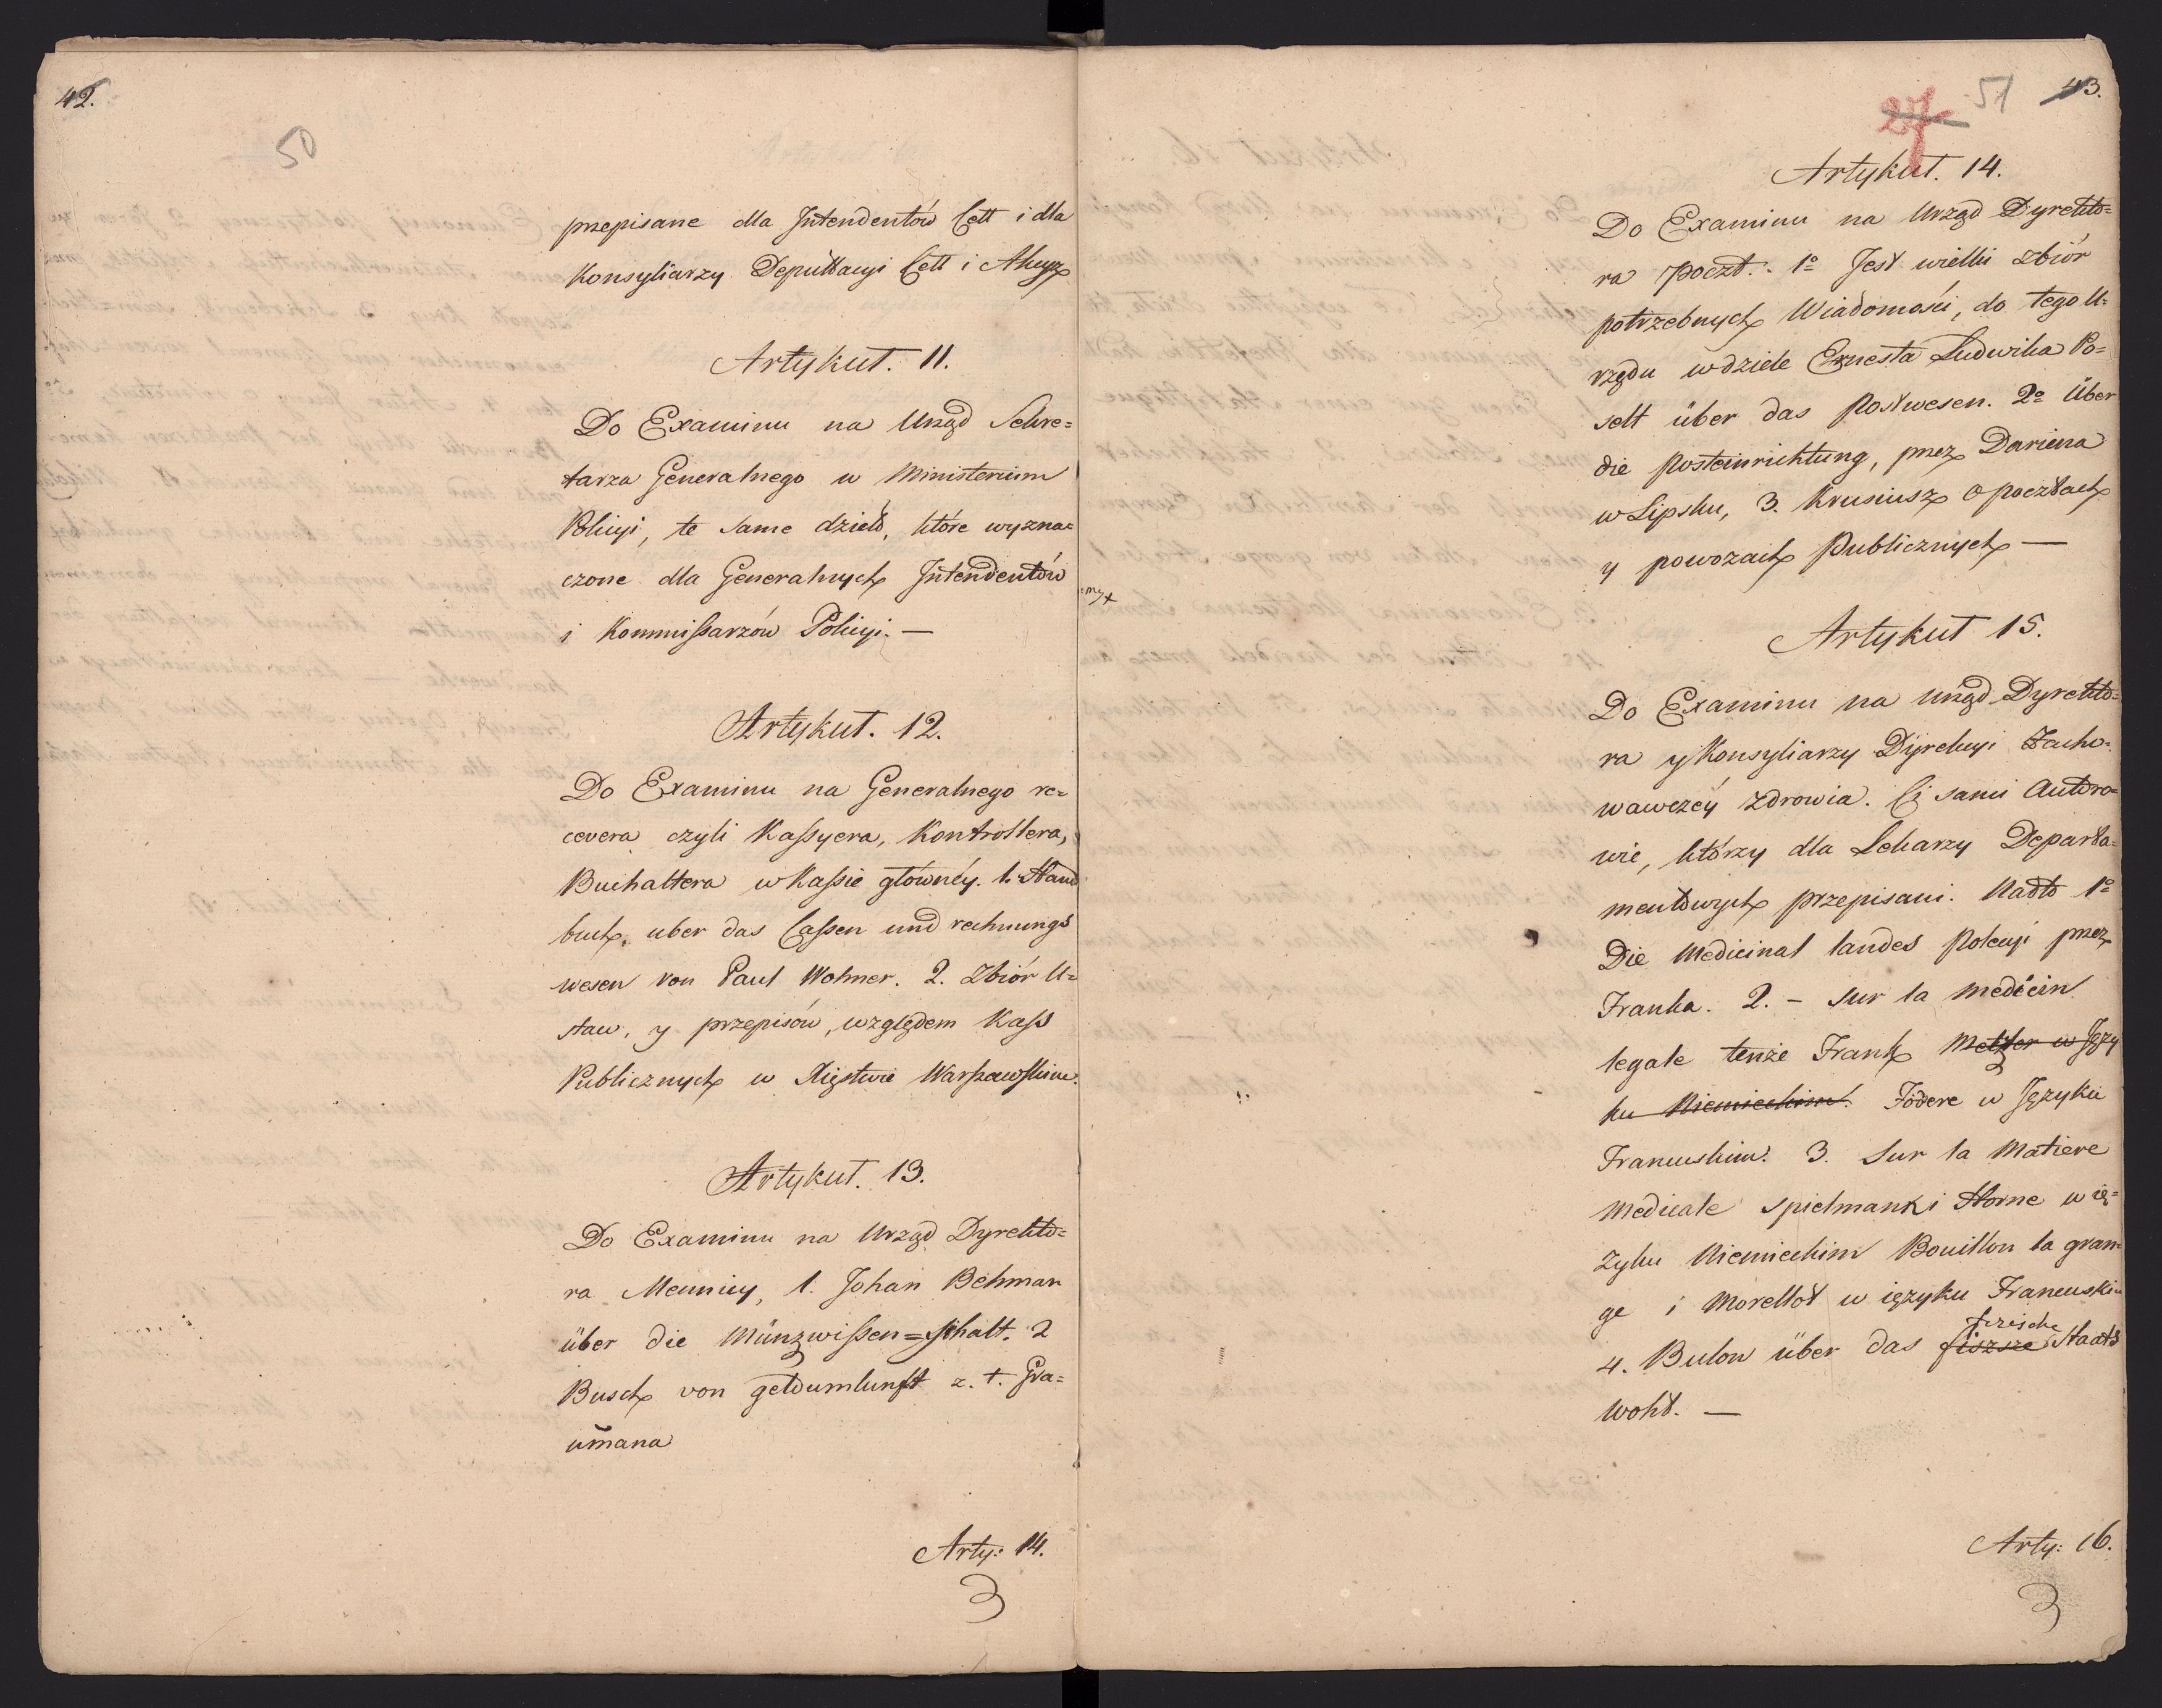 42.
50
przepisane dla Intendentów Cell i dla
Konsyliarzy Deputacyi Cell i Akcyz
Artykuł. 11.
Do Examinu na Urząd Sekre=
tarza Generalnego w Ministerium
Policyi, te same dzieła, które wyzna=
czone dla Generalnych Intendentów
i Kommissarzów Policyi. —
Artykuł. 12.
Do Examinu na Generalnego re=
cevera czyli Kassyera, Kontrollera,
Buchaltera w Kassie główney. 1. Hand
buch, uber das Cassen und rechnungs
wesen von Paul Wohner. 2. Zbiór U=
staw, y przepisów, względem Kass
Publicznych w Xięstwie Warszawskim.
Artykuł. 13.
Do Examinu na Urząd Dyrekto=
ra Mennicy, 1. Johan Behman
über die Münzwissen=schaft. 2
Busch von geldumlunft z. t. Gra=
umana
Arty: 14.
27
51
43.
Artykuł. 14.
Do Examinu na Urząd Dyrekto=
ra Poczt. 1º Jest wielki zbiór
potrzebnych Wiadomości, do tego U=
rzędu w dziele Ernesta Ludwika Po=
selt über das Postwesen. 2º Über
die Posteinrichtung, przez Dariena
w Lipsku, 3. Krusiusz O pocztach
y powozach Publicznych —
Artykuł 15.
Do Examinu na urząd Dyrekto=
ra y Konsyliarzy Dyrekcyi Zacho=
wawczéy zdrowia. Ci sami Autoro=
wie, którzy dla Lekarzy Departa=
mentowych przepisani. Nadto 1º
Die Medicinal landes Policyi przez
Franka. 2. — Sur la medécin
legale tenże Frank Metzler w Języ
ku Niemieckim. Födere w Języku
Francuskim. 3. Sur la Matiere
Medicale Spielmank i Horne w ię=
zyku Niemieckim Bouillon la gran=
ge i Morellot w ięzyku Francuskim
fizische
4. Bulow über das fiszsze Staats
wohl. —
Arty: 16.